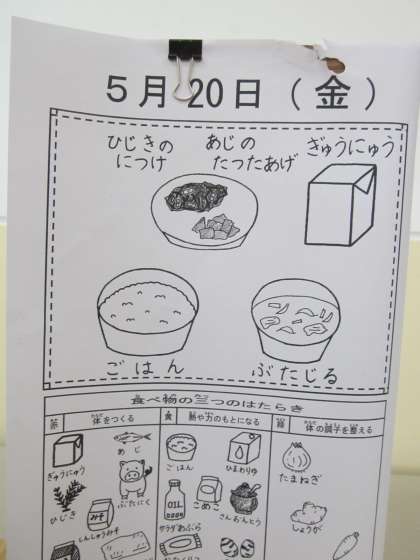 5月20日(金)
ひじきの
につけ
あじの
たったあげ
ぎゅうにゅう
ごはん
ぶたじる
食べ物の三つのはたらき
赤 体をつくる
黄 熱や力のもとになる
緑 体の調子を整える
ぎゅうにゅう
あじ
ひじき
ぶたにく
みそ
しんしゅうみそ
ごはん
ひまわりゆ
OIL
サラダあぶら
こめこ
さんおんとう
たまねぎ
しょうが